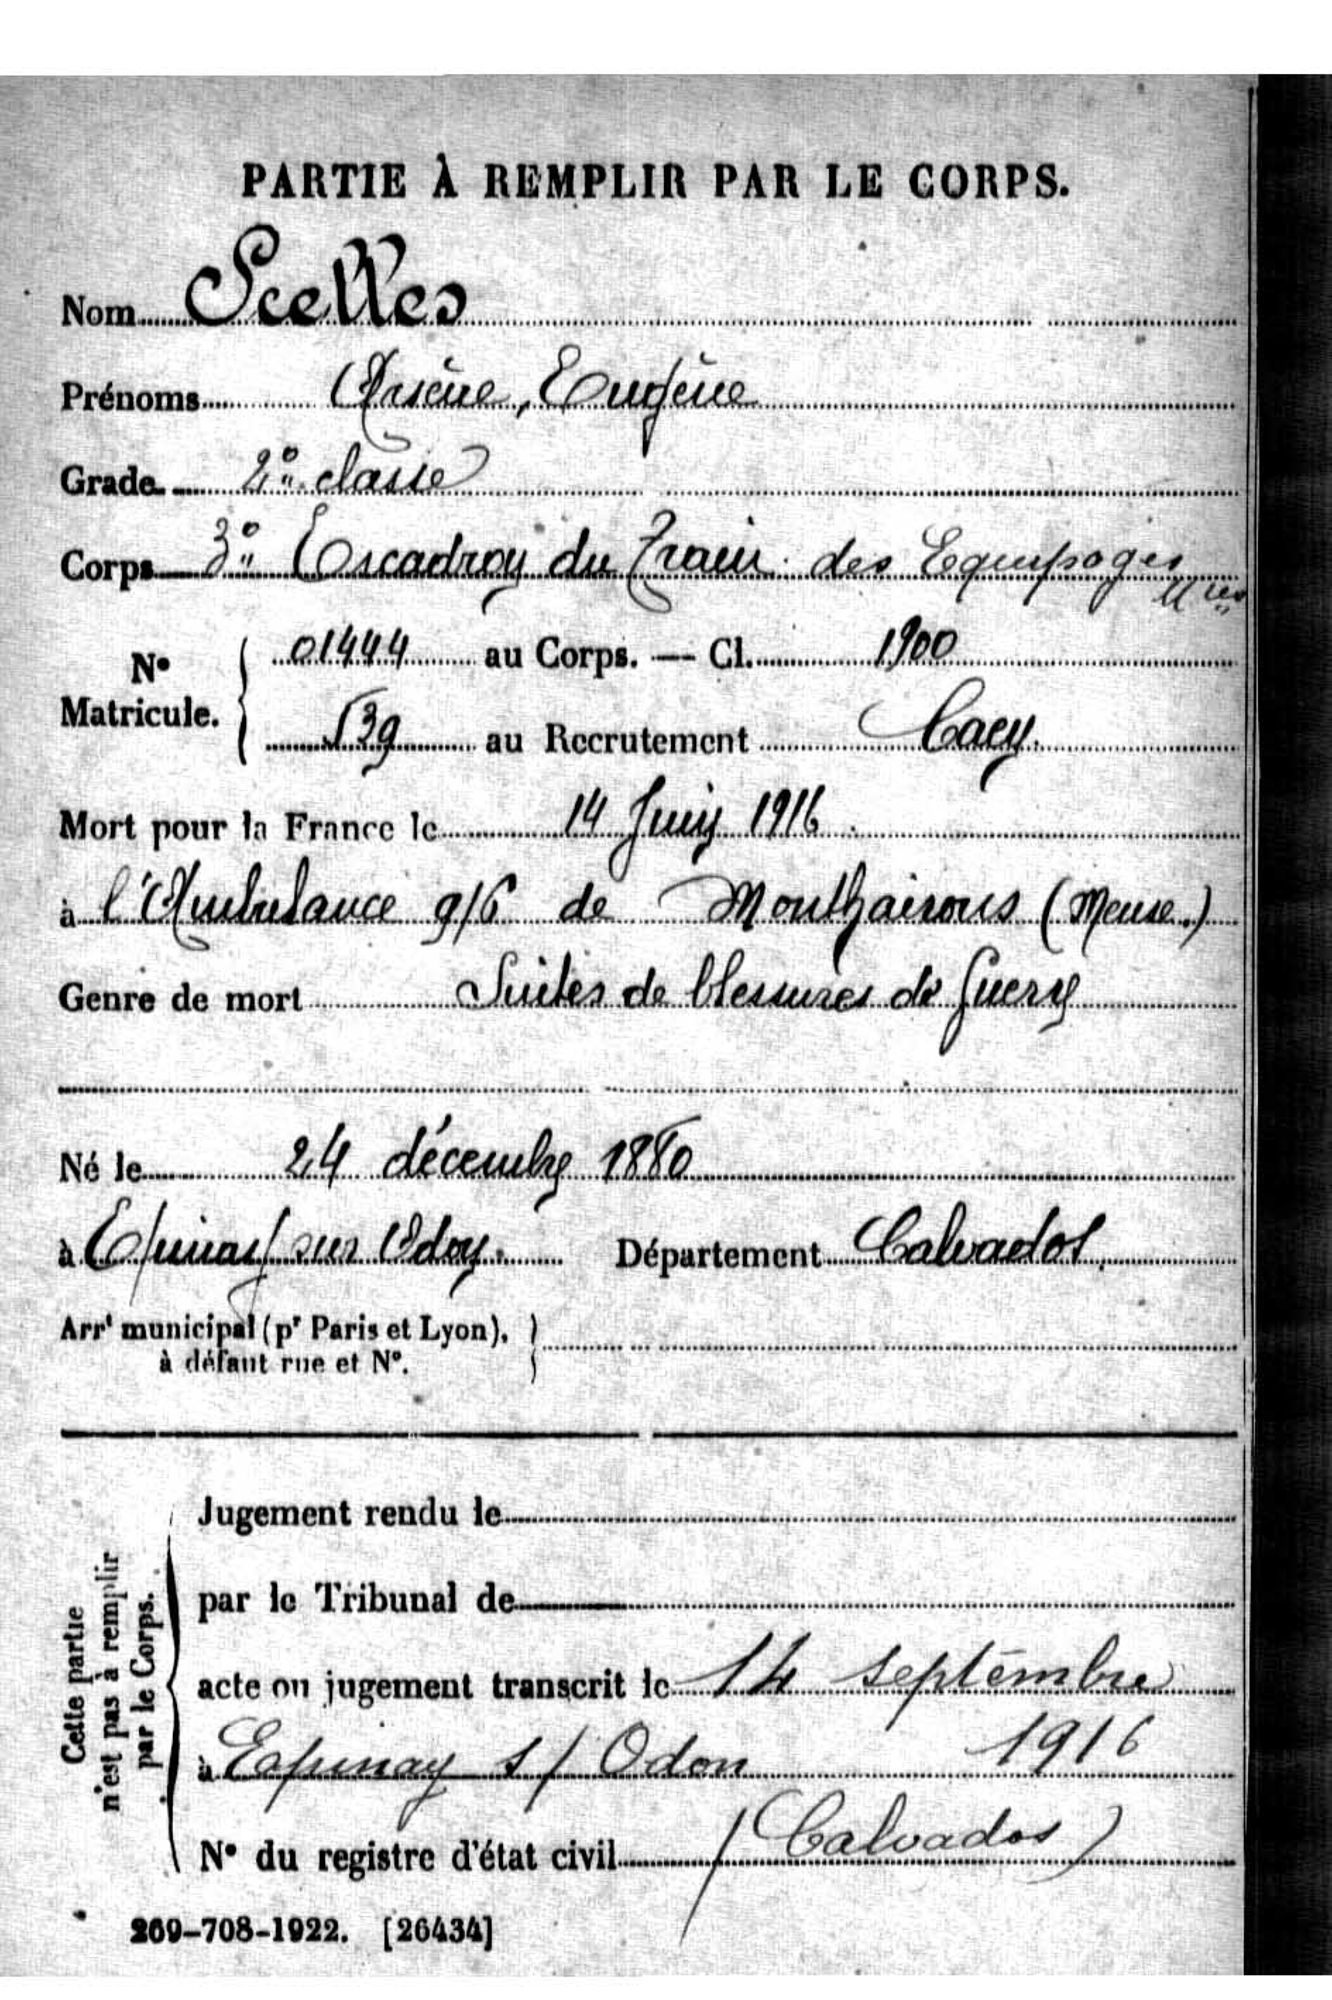 PARTIE À REMPLIR PAR LE CORPS.
Nom Scelles
Prénoms Arsène, Eugène
Grade 2e classe
Corps 3e Escadron du Train des Equipages Mres
N° Matricule. 01444 au Corps. — Cl. 1900
539 au Recrutement Caen.
Mort pour la France le 14 Juin 1916
à l'Ambulance 9/6 de Monthairons (Meuse.)
Genre de mort Suites de blessures de Guerre
Né le 24 décembre 1880
à Epinay sur Odon. Département Calvados.
Arrt municipal (pr Paris et Lyon),
à défaut rue et N°.
Cette partie
n'est pas à remplir
par le Corps.
Jugement rendu le
par le Tribunal de
acte ou jugement transcrit le 14 septembre
1916
à Espinay s/ Odon
N° du registre d'état civil (Calvados)
269-708-1922. [26434]